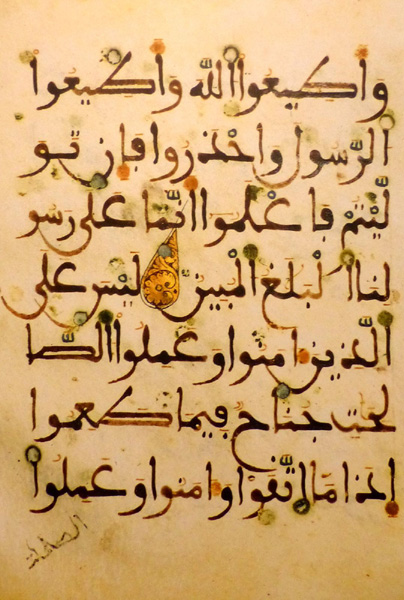 وَأَطِيعُوا اللَّهَ وَأَطِيعُوا
الرَّسُولَ وَاحْذَرُوا فَإِن تَوَ
لَّيْتُمْ فَاعْلَمُوا أَنَّمَا عَلَىٰ رَسُو
لِنَا الْبَلَٰغُ الْمُبِينُ لَيْسَ عَلَى
الَّذِينَ ءَامَنُوا وَعَمِلُوا الصَّٰ
لِحَٰتِ جُنَاحٌ فِيمَا طَعِمُوا
إِذَا مَا اتَّقَوا وَّءَامَنُوا وَعَمِلُوا
الصلحت